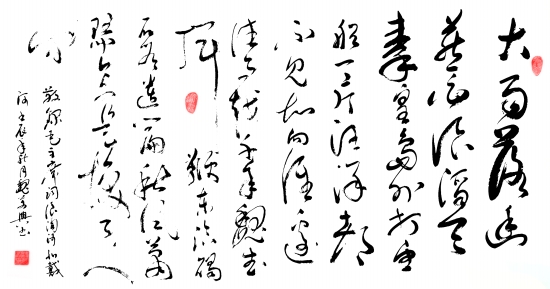 大雨落幽
燕白浪滔天
秦皇岛外打鱼
船一片汪洋都
不见知向谁边
往事越千年魏武
挥鞭东临碣
石有遗篇秋风萧
瑟今又是换了人
间
敬录毛主席词浪淘沙北戴
河壬辰年秋月魏兴书